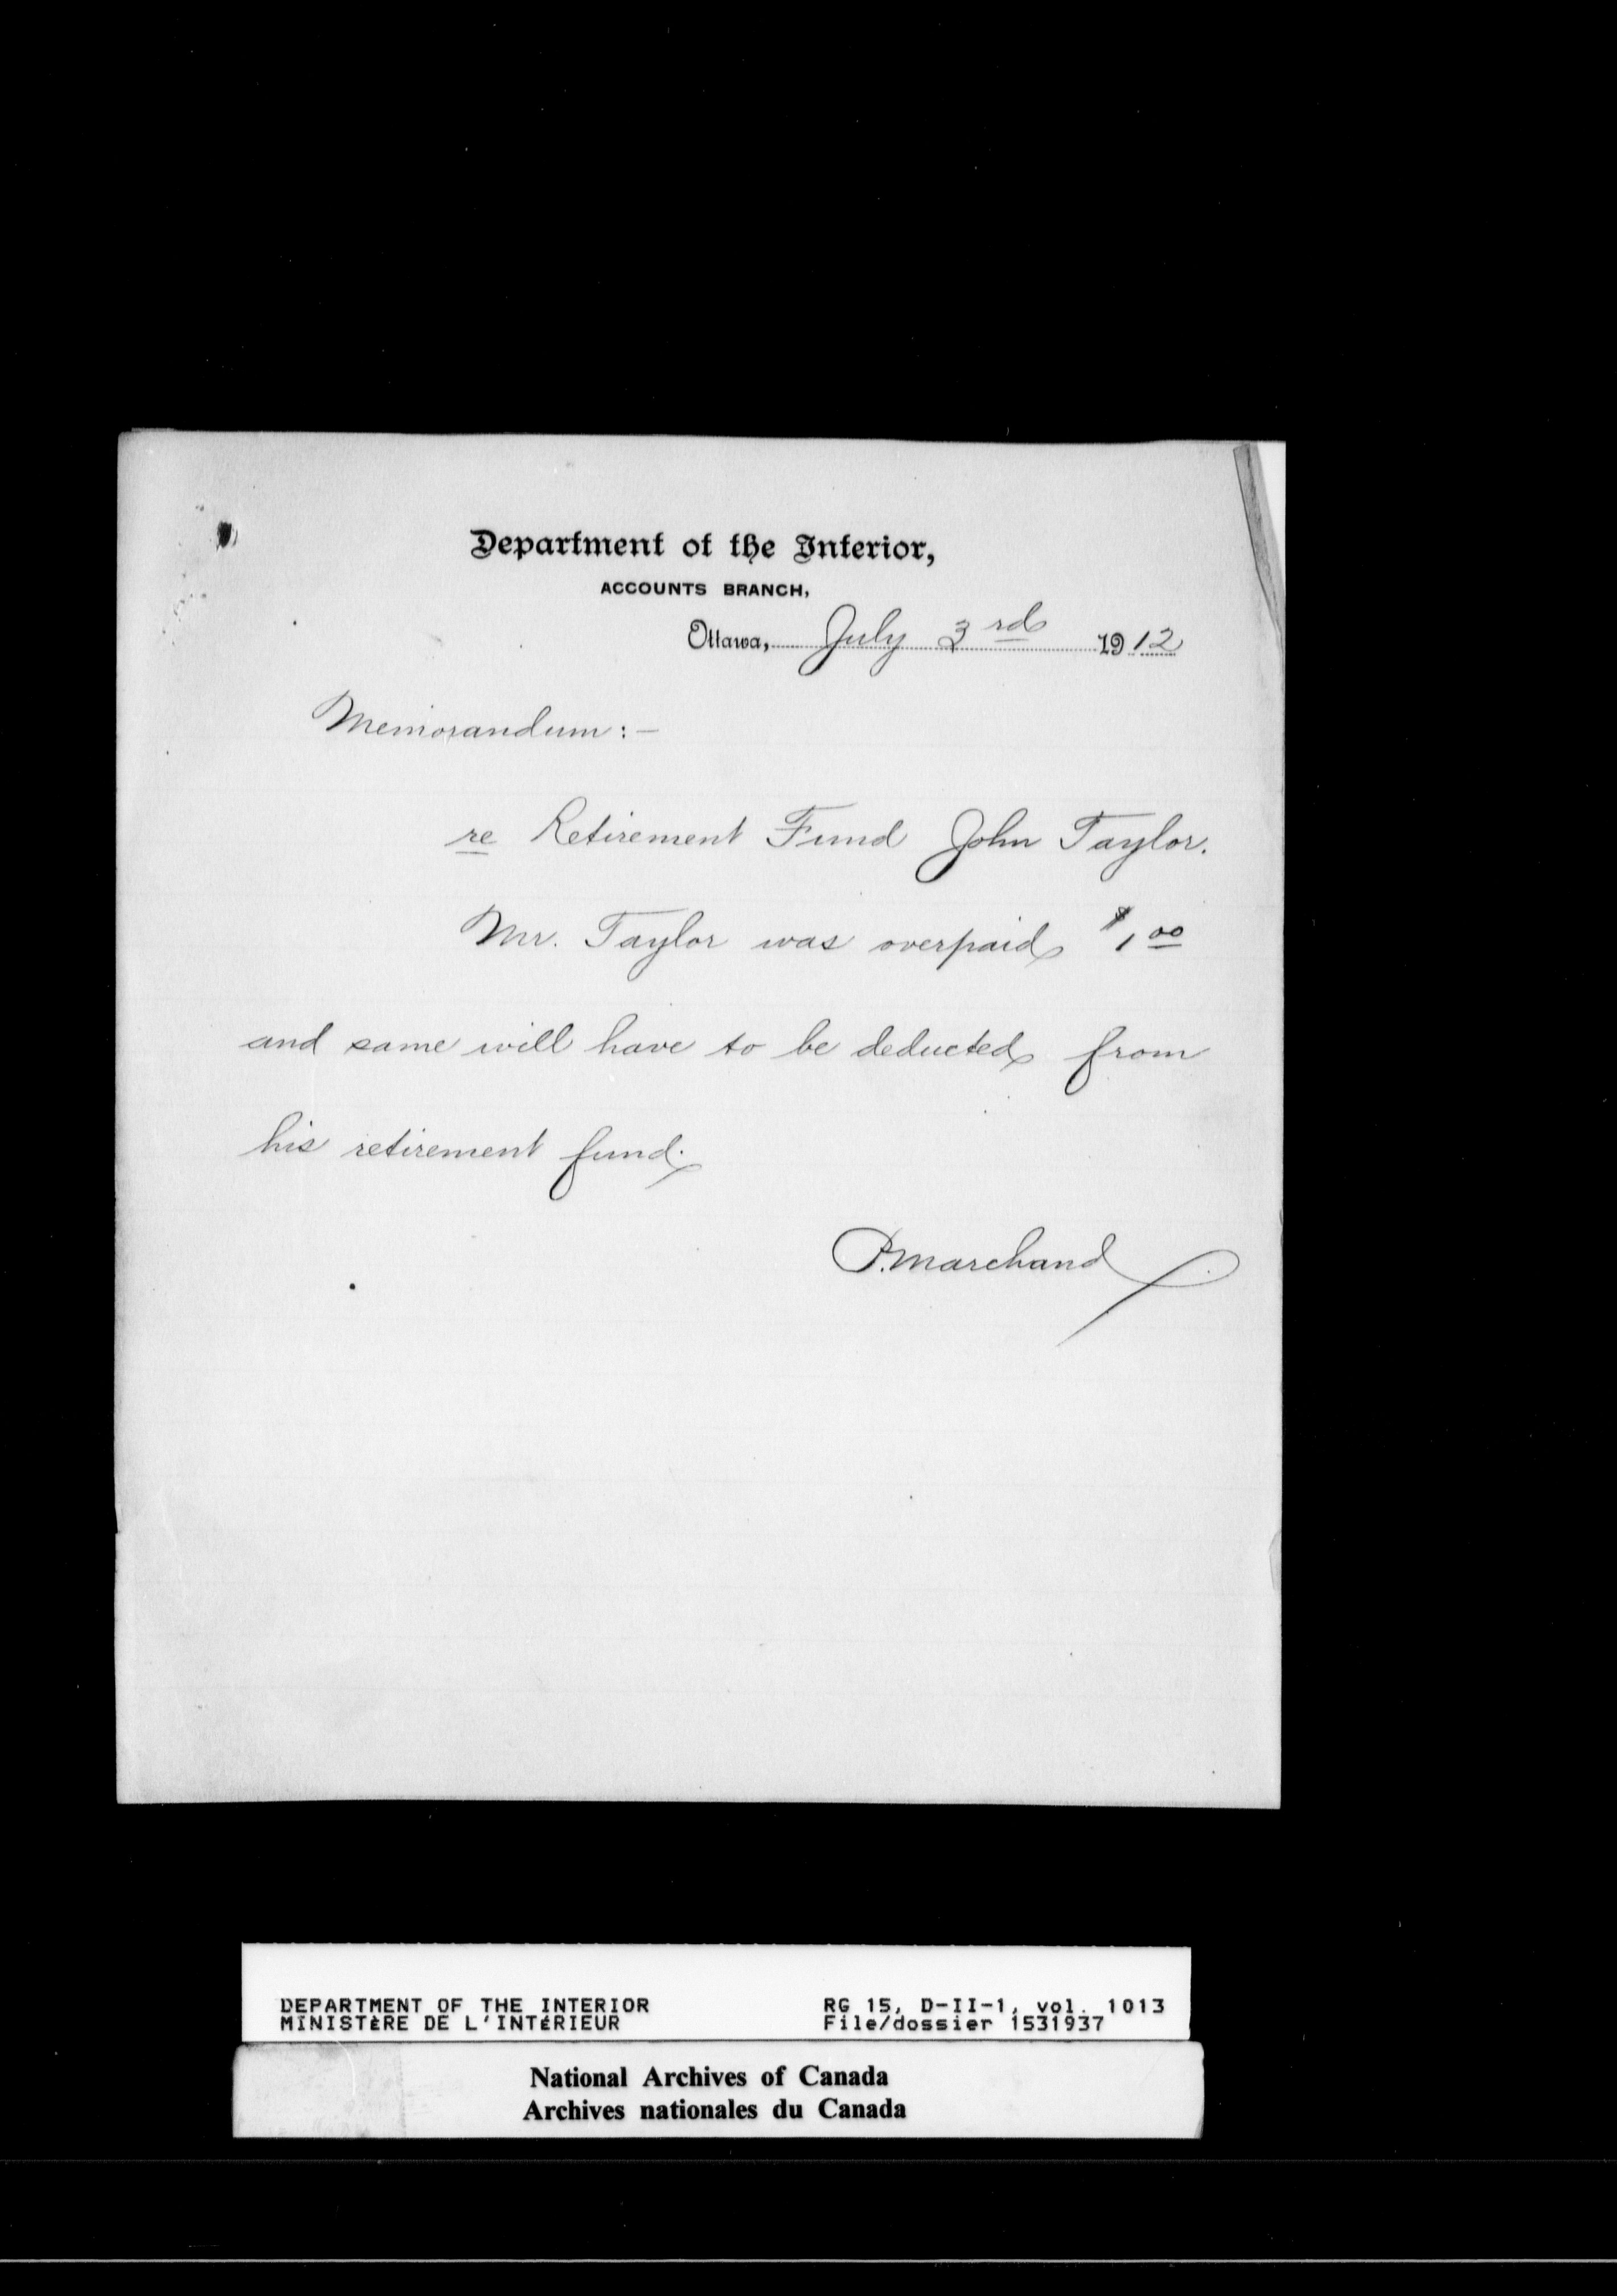 Department of the Interior,
ACCOUNTS BRANCH,
Ottawa, July 3rd 1912
Memorandum:-
re Retirement Fund John Taylor.
Mr. Taylor was overpaid $1.00
and same will have to be deducted from
his retirement fund.
P. Marchand
DEPARTMENT OF THE INTERIOR
MINISTÈRE DE L'INTÉRIEUR
RG 15, D-II-1, vol. 1013
File/dossier 1531937
National Archives of Canada
Archives nationales du Canada